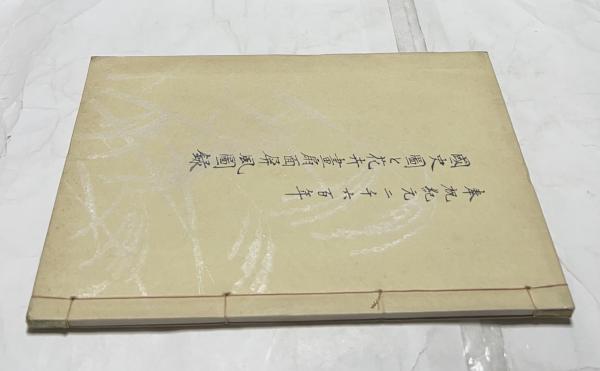 奉祝紀元二千六百年
國史圖と花卉畫扇面屏風圖録